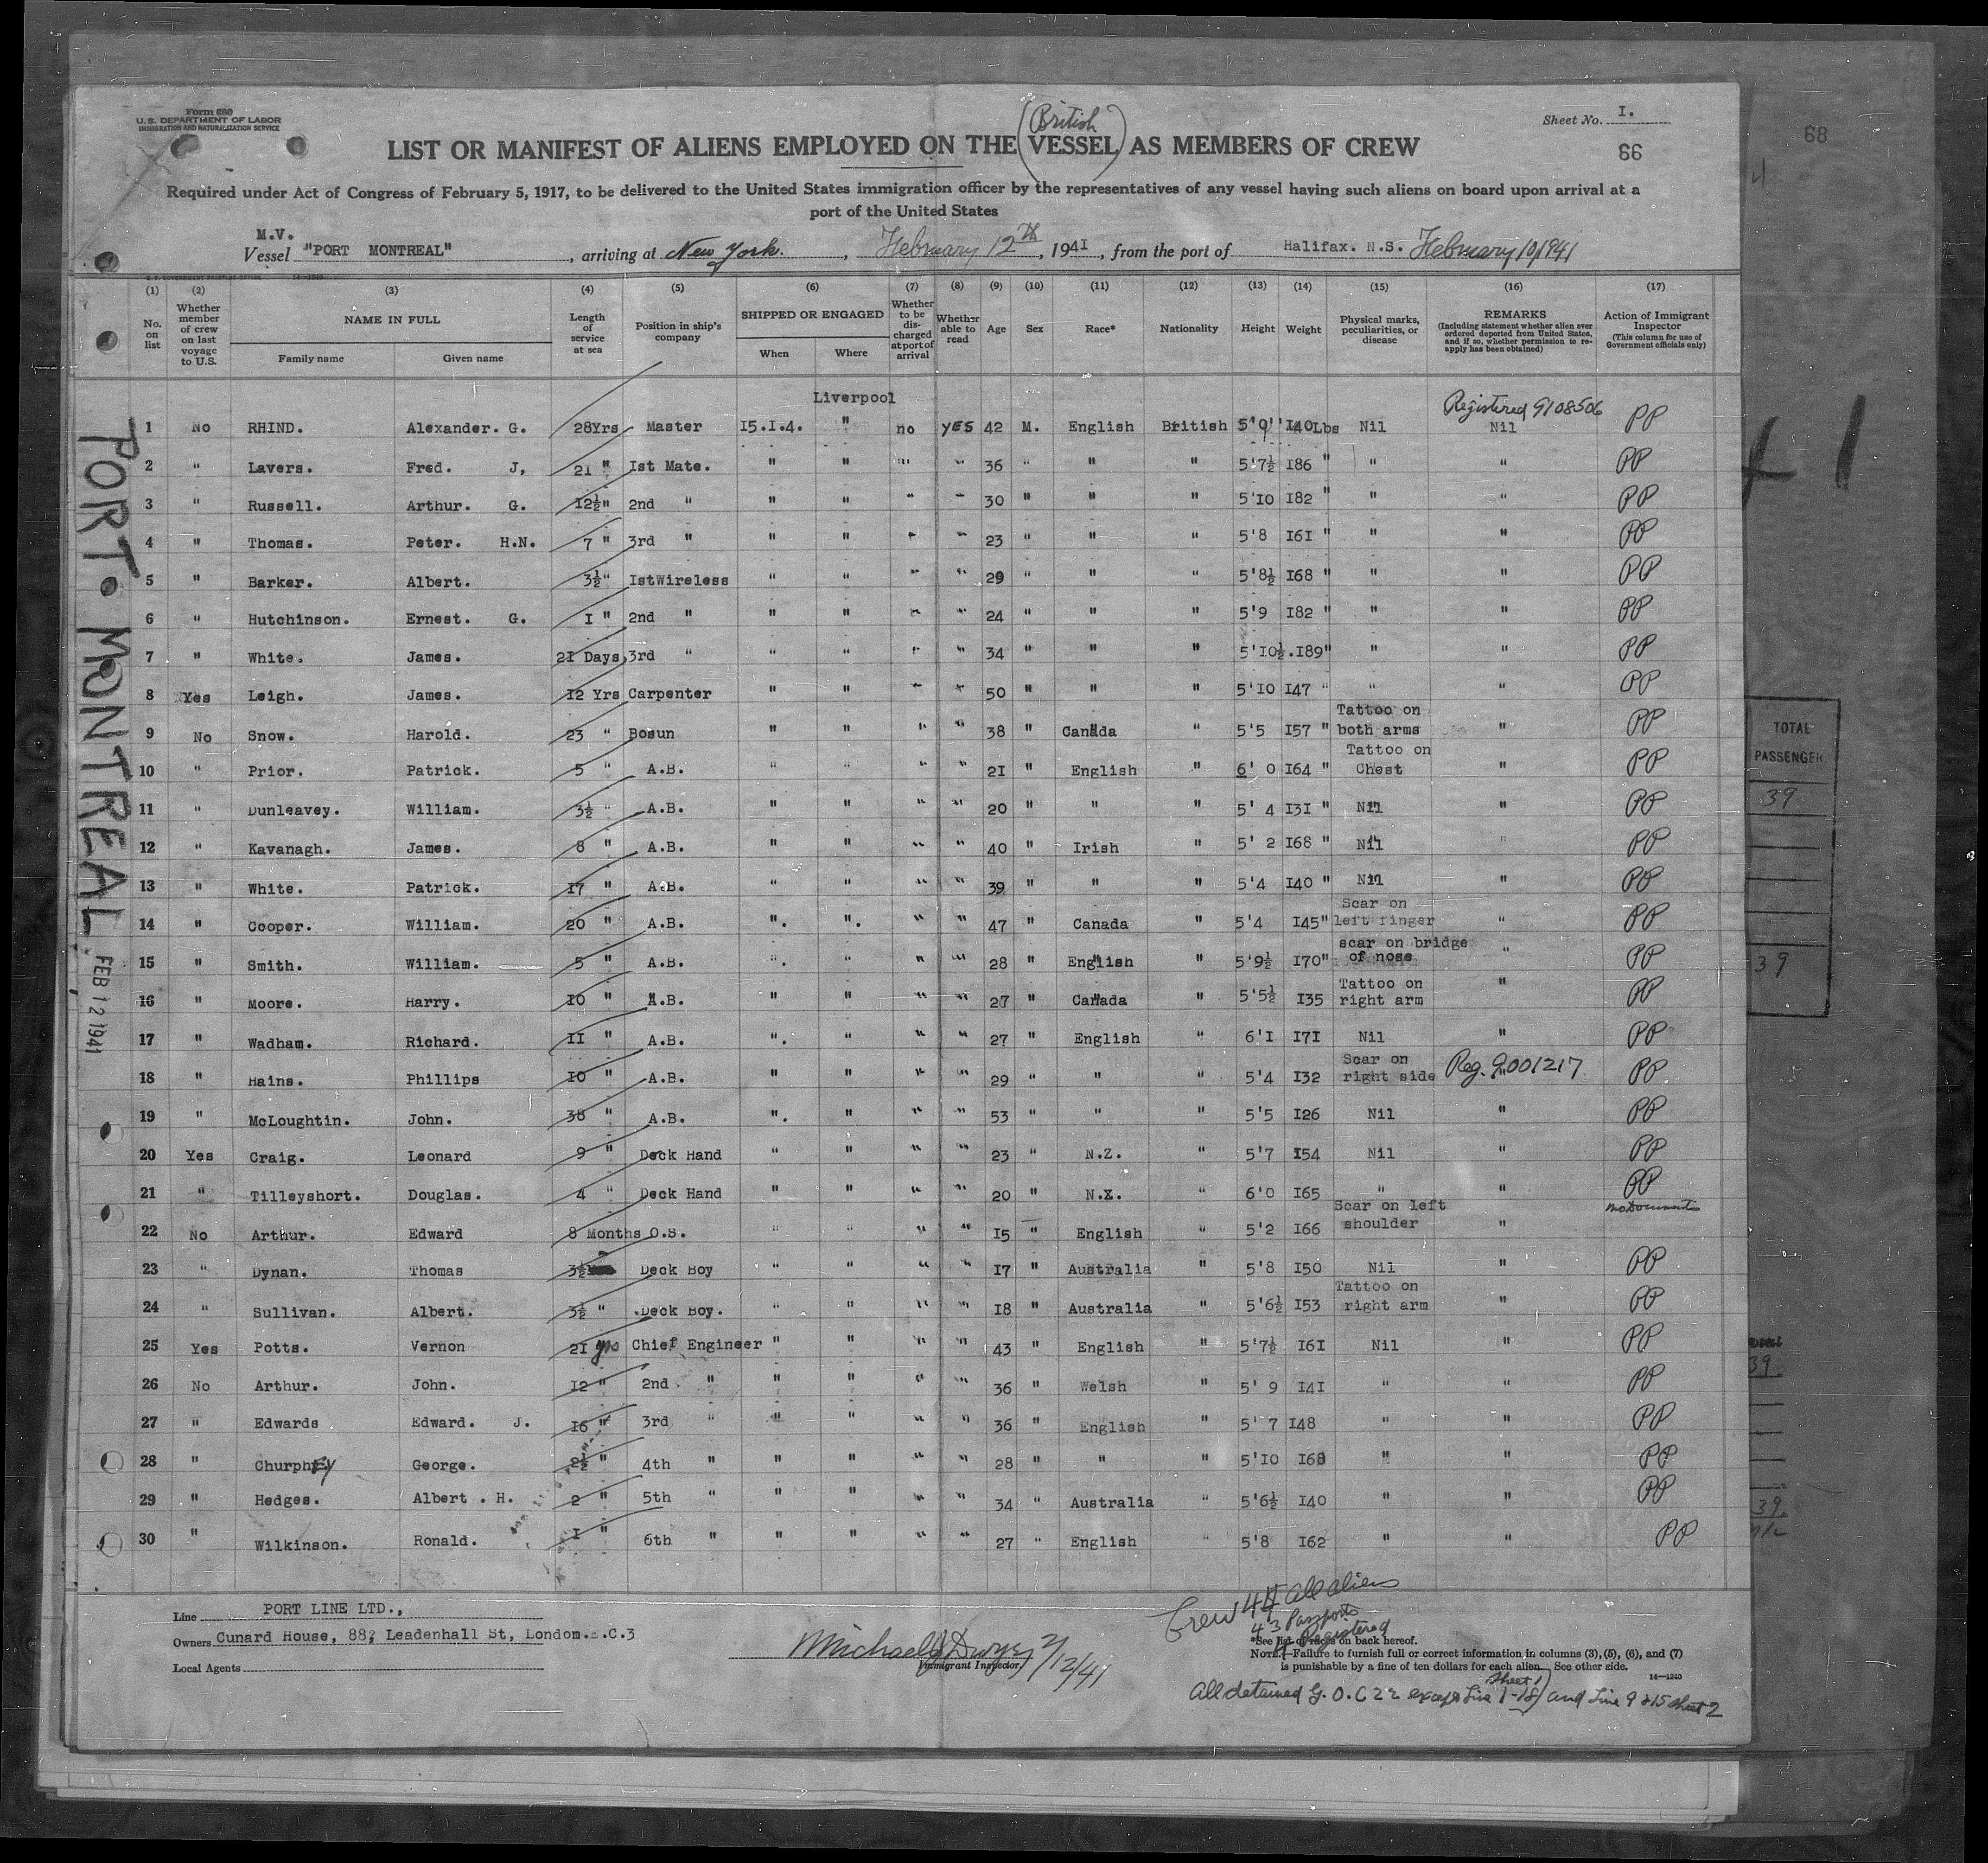 Form 680
U. S. DEPARTMENT OF LABOR
IMMIGRATION AND NATURALIZATION SERVICE
Sheet No. I.
66
68
(British)
LIST OR MANIFEST OF ALIENS EMPLOYED ON THE VESSEL AS MEMBERS OF CREW
Required under Act of Congress of February 5, 1917, to be delivered to the United States immigration officer by the representatives of any vessel having such aliens on board upon arrival at a
port of the United States
M.V.
Vessel "PORT MONTREAL", arriving at New York., February 12th, 1941, from the port of Halifax. N.S. February 10, 1941
(1) (2) (3) (4) (5) (6) (7) (8) (9) (10) (11) (12) (13) (14) (15) (16) (17)
No. on list
Whether member of crew on last voyage to U.S.
NAME IN FULL
Family name Given name
Length of service at sea
Position in ship's company
SHIPPED OR ENGAGED
When Where
Whether to be discharged at port of arrival
Whether able to read
Age Sex Race* Nationality Height Weight
Physical marks, peculiarities, or disease
REMARKS
(Including statement whether alien ever ordered deported from United States, and if so, whether permission to reapply has been obtained)
Action of Immigrant Inspector
(This column for use of Government officials only)
Liverpool
Registered 9108506
1 No RHIND. Alexander. G. 28Yrs Master I5.I.4. " no YES 42 M. English British I40Lbs Nil Nil PP
2 " Lavers. Fred. J, 21 " Ist Mate. " " " " 36 " " " 5'7½ I86 " " " PP
3 " Russell. Arthur. G. I2½" 2nd " " " " " 30 " " " 5'I0 I82 " " " PP
4 " Thomas. Peter. H.N. 7 " 3rd " " " " " 23 " " " 5'8 I6I " " " PP
5 " Barker. Albert. 3½" IstWireless " " " " 29 " " " 5'8½ I68 " " " PP
6 " Hutchinson. Ernest. G. I " 2nd " " " " " 24 " " " 5'9 I82 " " " PP
7 " White. James. 2I Days 3rd " " " " " 34 " " " 5'I0½.I89" " " PP
8 Yes Leigh. James. I2 Yrs Carpenter " " " " 50 " " " 5'I0 I47 " " " PP
9 No Snow. Harold. 23 " Bosun " " " " 38 " Canada " 5'5 I57 " Tattoo on both arms " PP
10 " Prior. Patrick. 5 " A.B. " " " " 2I " English " 6' 0 I64 " Tattoo on Chest " PP
11 " Dunleavey. William. 3½ " A.B. " " " " 20 " " " 5' 4 I3I " Nil " PP
12 " Kavanagh. James. 8 " A.B. " " " " 40 " Irish " 5' 2 I68 " Nil " PP
13 " White. Patrick. I7 " A.B. " " " " 39 " " " 5'4 I40 " Nil " PP
14 " Cooper. William. 20 " A.B. ". ". " " 47 " Canada " 5'4 I45" Scar on left finger " PP
15 " Smith. William. 5 " A.B. ". " " " 28 " English " 5'9½ I70" scar on bridge of nose " PP
16 " Moore. Harry. I0 " A.B. " " " " 27 " Canada " 5'5½ I35 Tattoo on right arm " PP
17 " Wadham. Richard. II " A.B. ". " " " 27 " English " 6'I I7I Nil " PP
18 " Hains. Phillips I0 " A.B. " " " " 29 " " " 5'4 I32 Scar on right side Reg. 9001217 PP
19 " McLoughtin. John. 38 " A.B. ". " " " 53 " " " 5'5 I26 Nil " PP
20 Yes Craig. Leonard 9 " Deck Hand " " " " 23 " N.Z. " 5'7 I54 Nil " PP
21 " Tilleyshort. Douglas. 4 " Deck Hand " " " " 20 " N.Z. " 6'0 I65 " " PP
22 No Arthur. Edward 8 Months O.S. " " " " I5 " English " 5'2 I66 Scar on left shoulder " no Documents
23 " Dynan. Thomas 3½ Deck Boy " " " " I7 " Australia " 5'8 I50 Nil " PP
24 " Sullivan. Albert. 3½ " Deck Boy. " " " " I8 " Australia " 5'6½ I53 Tattoo on right arm " PP
25 Yes Potts. Vernon 2I yrs Chief Engineer " " " " 43 " English " 5'7½ I6I Nil " PP
26 No Arthur. John. I2 " 2nd " " " " " 36 " Welsh " 5' 9 I4I " " PP
27 " Edwards Edward. J. I6 " 3rd " " " " " 36 " English " 5' 7 I48 " " PP
28 " Churphey George. 2½ " 4th " " " " " 28 " " " 5'I0 I68 " " PP
29 " Hedges. Albert . H. 2 " 5th " " " " " 34 " Australia " 5'6½ I40 " " PP
30 " Wilkinson. Ronald. I " 6th " " " " " 27 " English " 5'8 I62 " " PP
PORT MONTREAL
FEB 12 1941
Line PORT LINE LTD.,
Owners Cunard House, 88, Leadenhall St, London.E.C.3
Local Agents
Michael J Dwyer 2/12/41
Immigrant Inspector
Crew 44 all aliens
43 Passports
4 Registered
*See list of races on back hereof.
NOTE.—Failure to furnish full or correct information in columns (3), (5), (6), and (7)
is punishable by a fine of ten dollars for each alien. See other side.
14—1240
All detained G. O. C 22 except Line 1-18 Sheet 1) and Line 9 & 15 sheet 2
TOTAL
PASSENGER
39
39
39
39